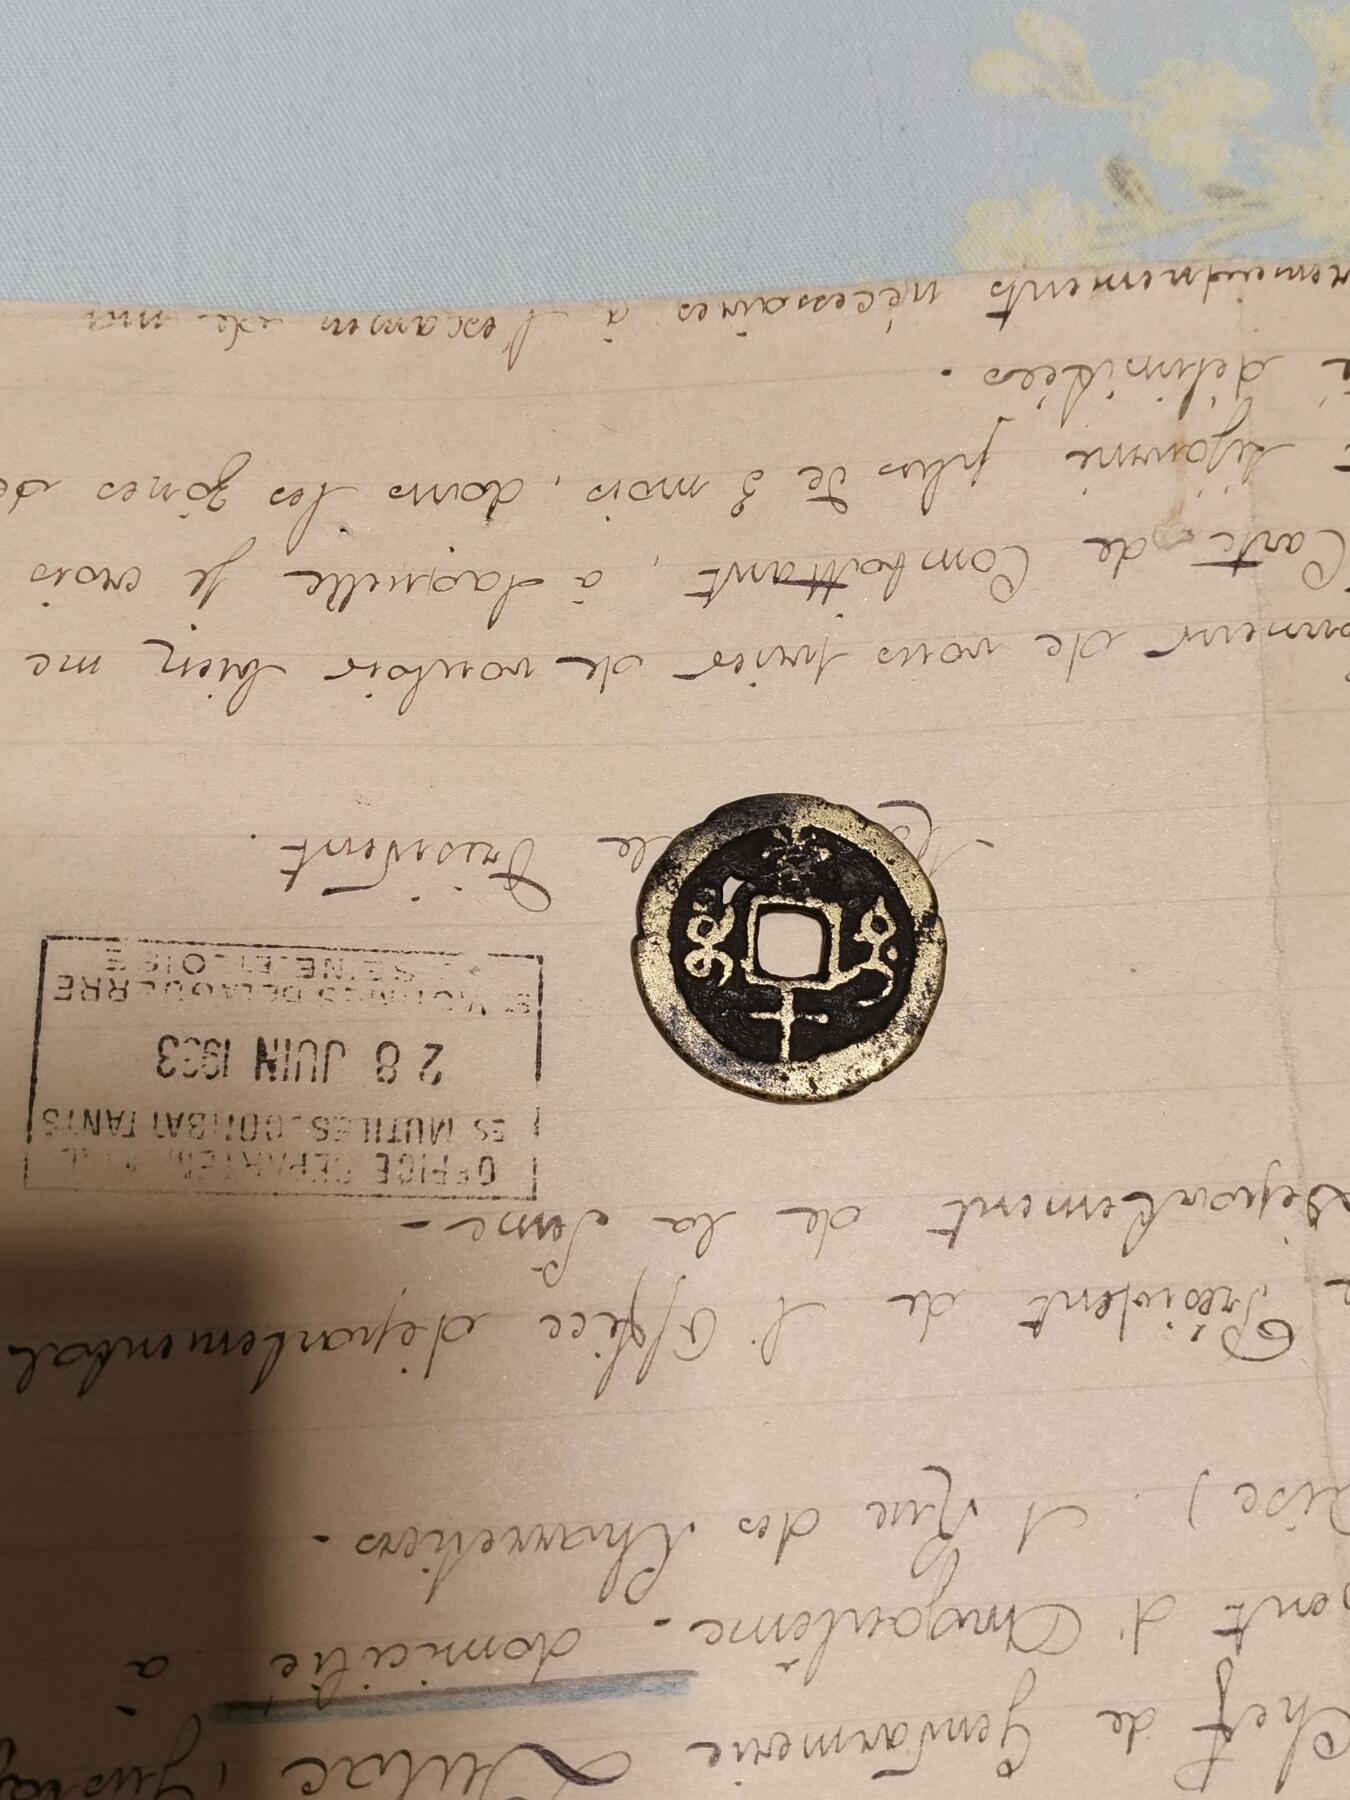 Chef de Gendarmerie
d'Angoulême. domicilié à
oise). 1 Rue des Charretiers.
Président de l'Office départemental
Département de la Seine-
OFFICE DEPARTEMENTAL
ES MUTILES.COMBATTANTS
28 JUIN 1933
ET VICTIMES DE LA GUERRE
SEINE-ET-OISE
le Président.
de vous prier de vouloir bien me
Carte de Combattant, à laquelle je crois
séjourné plus de 3 mois, dans les zones de
délimitées.
nécessaires à l'examen de ma
當
十